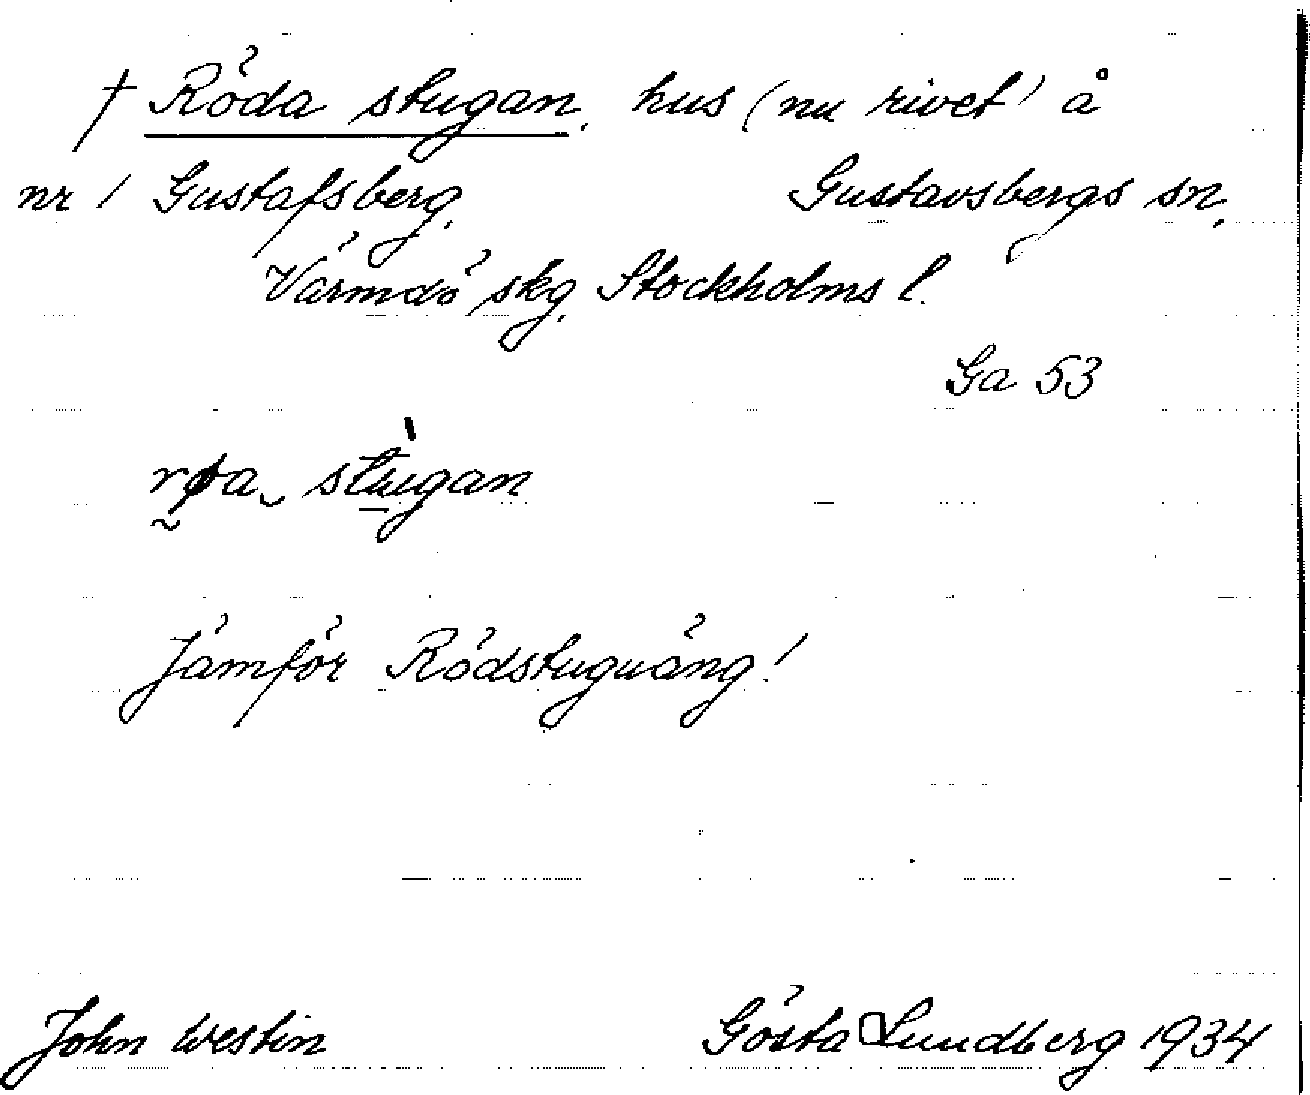 † Röda stugan, hus (nu rivet) å
nr 1 Gustafsberg, Gustavsbergs sn,
Värmdö skg, Stockholms l.
Ga 53
røa stugan
Jämför Rödstuguäng!
John Westin Gösta Lundberg 1934